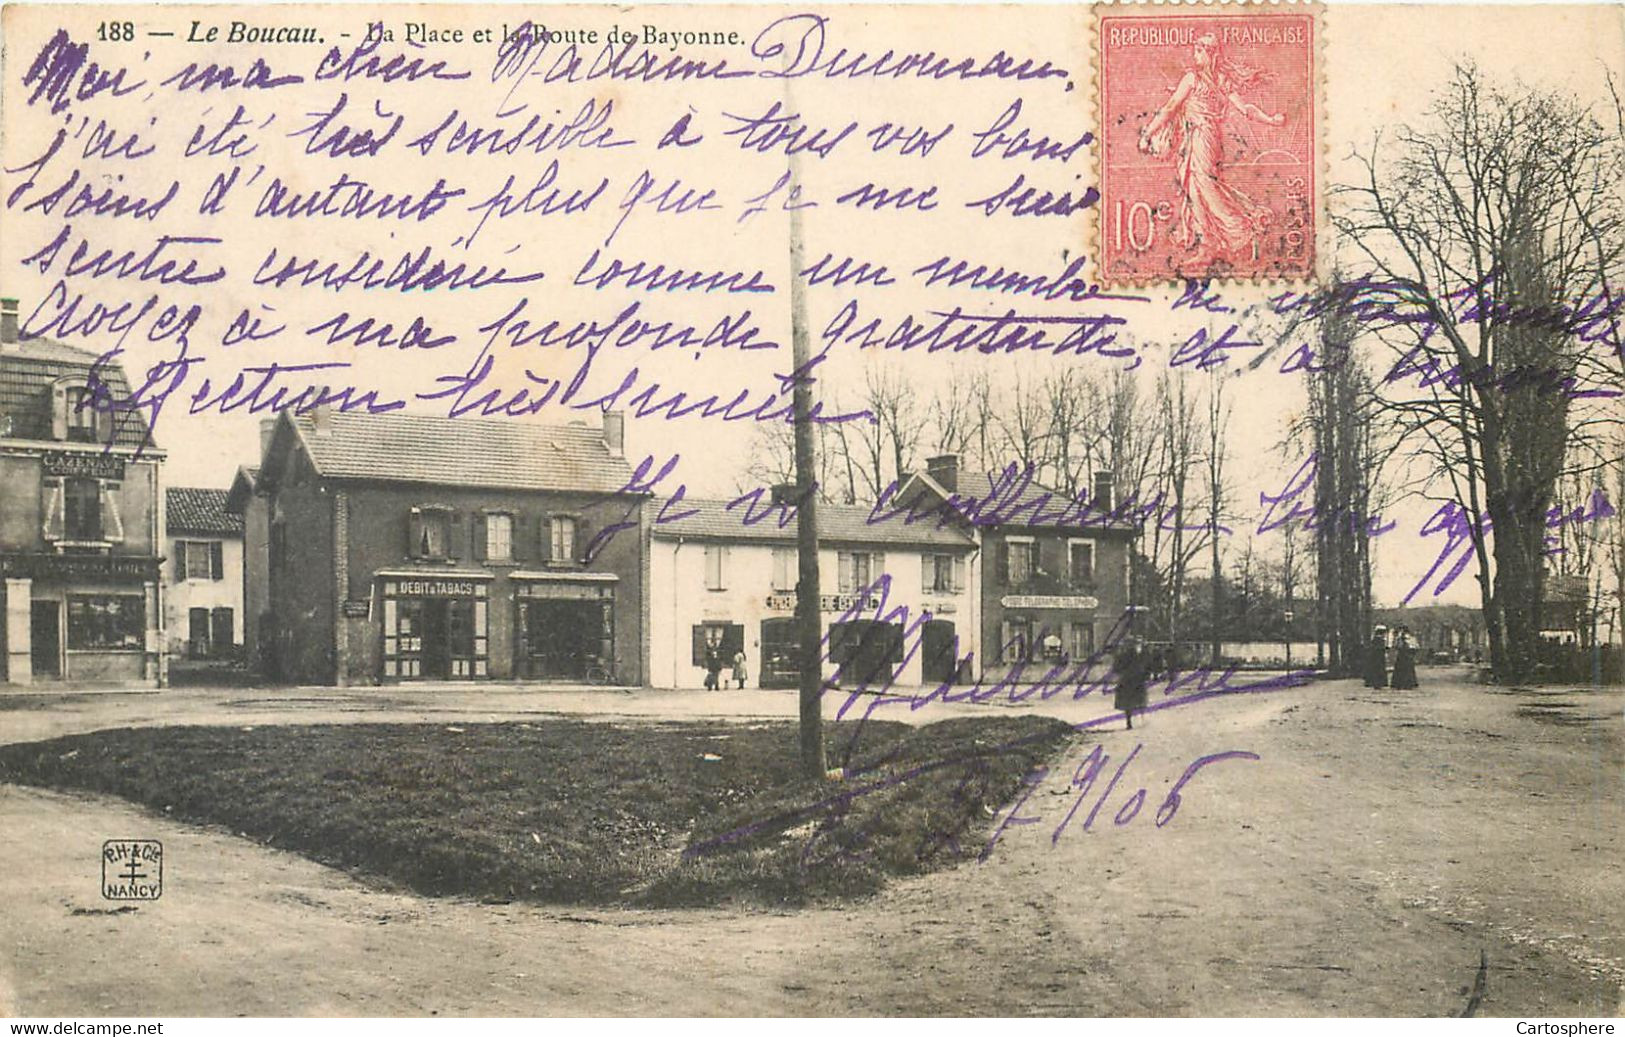 188 — Le Boucau. - La Place et la Route de Bayonne.
Moi, ma chèr Madame Ducournau,
j'ai été très sensible à tous vos bons
soins d'autant plus que je me suis
sentie considérée comme un membre de votre famille
Croyez à ma profonde gratitude, et à mon
affection très sincère.
Je vs embrasse bien
Madeleine
le 27/9/06
REPUBLIQUE FRANÇAISE
10c
POSTES
CAZENAVE
COIFFEUR
DEBIT DE TABACS
EPICERIE CENTRALE
POSTE TELEGRAPHE TELEPHONE
P.H. & Cie
NANCY
Cartosphere